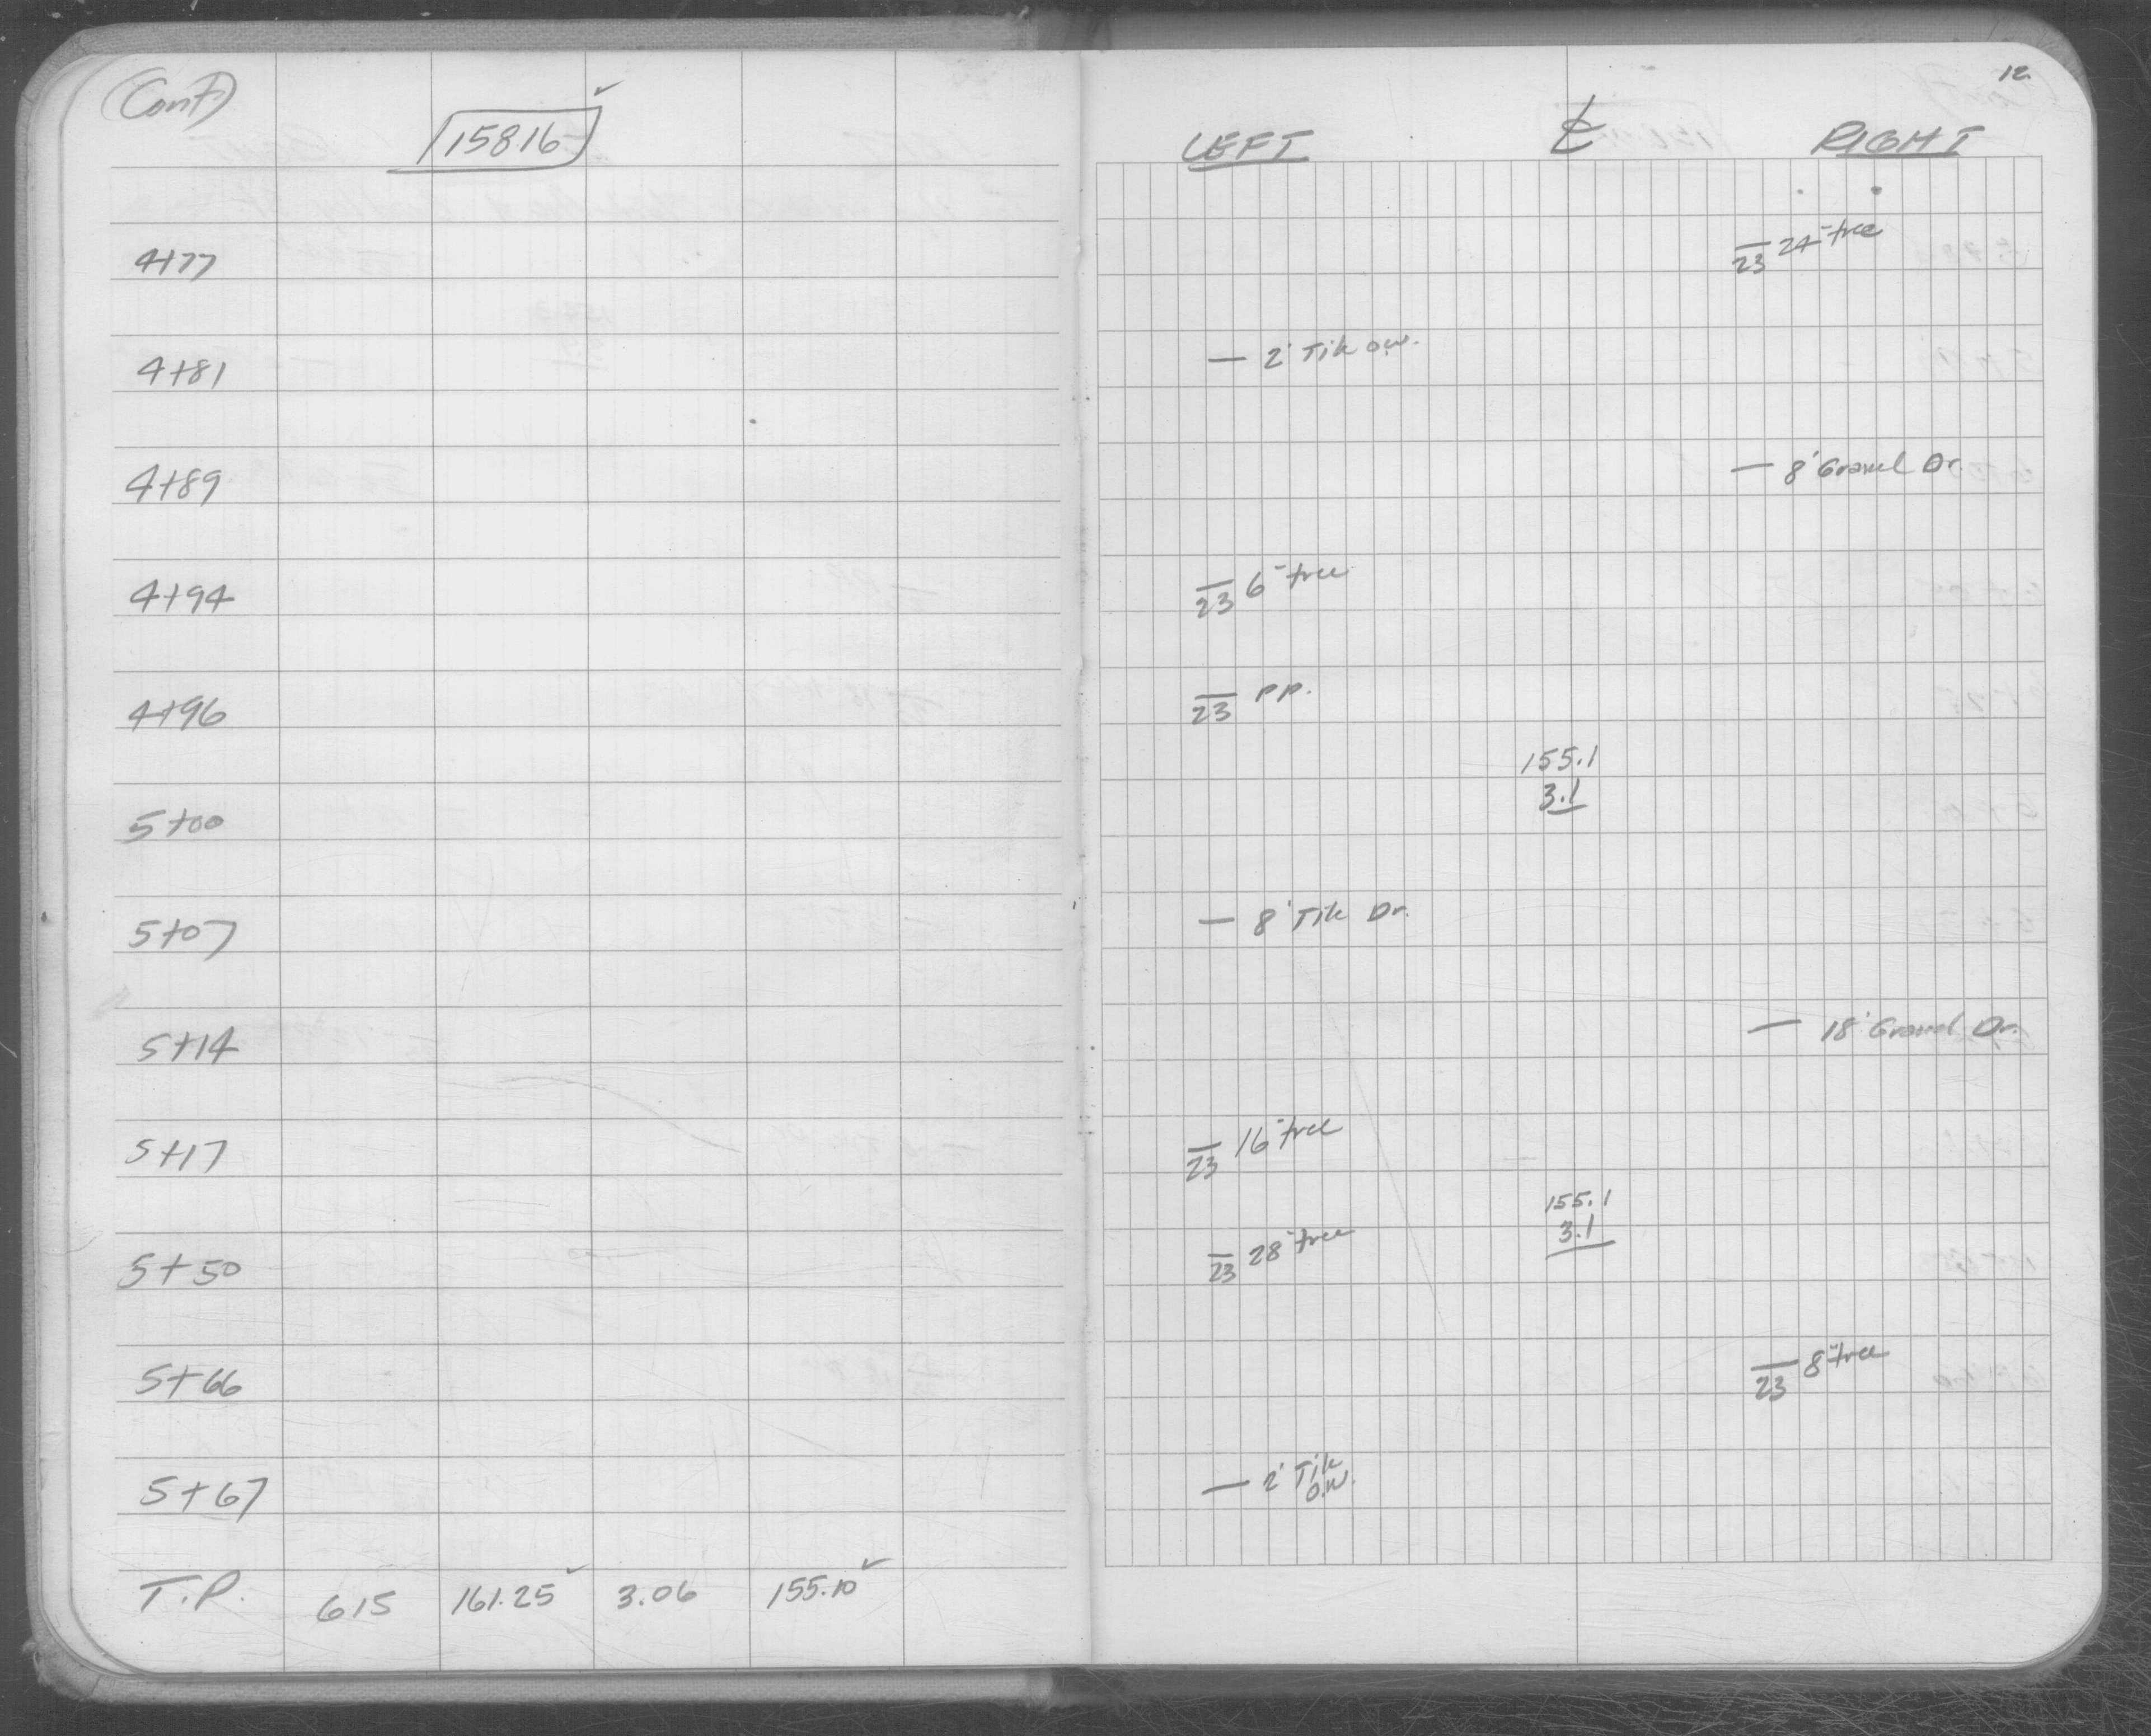 (Cont)
158.16 ✓
12.
LEFT ℄ RIGHT
4+77 — 24" tree
23
4+81 — 2' Tile o.w.
4+89 — 8' Gravel Dr.
4+94 — 6" tree
23
4+96 — P.P.
23
155.1
5+00 3.1
5+07 — 8' Tile Dr.
5+14 — 18' Gravel Dr.
5+17 — 16" tree
23
155.1
3.1
5+50 — 28" tree
23
5+66 — 8" tree
23
5+67 — 2' Tile
O.W.
T.P. 6.15 161.25 ✓ 3.06 155.10 ✓